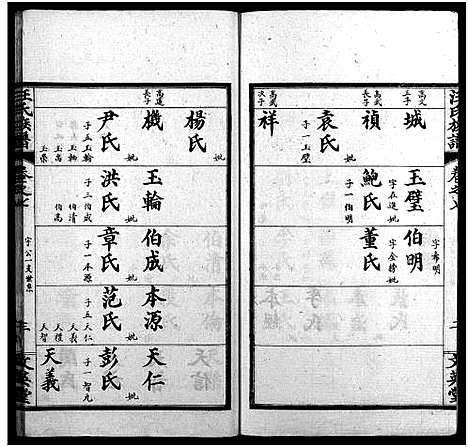 汪氏族譜
卷之七
文英堂
高文
三子
城
高武
長子
禎
袁氏
子一玉璧
妣
高武
次子
祥
玉璧
字在廷
鮑氏
子一伯明
妣
字希明
伯明
字金榜
董氏
妣
汪氏族譜
卷之七
字公一支世系
文英堂
楊氏
妣
高遠
長子
機
尹氏
子三玉輪
玉柄
玉高
玉榮
妣
玉輪
洪氏
子三伯成
伯清
伯高
妣
伯成
章氏
子一本源
妣
本源
范氏
子五天仁
天義
天禮
天智
妣
天仁
彭氏
子一智元
妣
天義